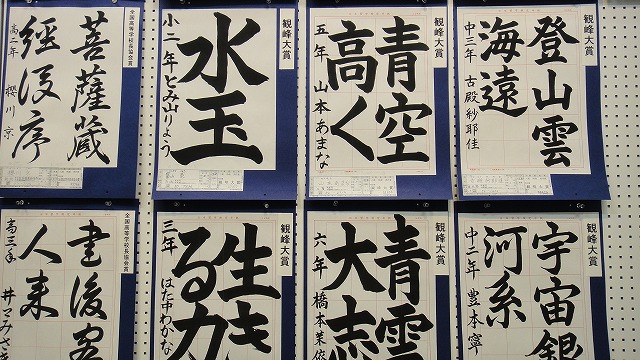 全国高等学校長協会賞
菩薩蔵
經後序
高二年 櫻川京
観峰大賞
水玉
小二年 とみ山りょう
観峰大賞
青空
高く
五年 山本あまな
観峰大賞
登山雲
海遠
中三年 古殿紗耶佳
全国高等学校長協会賞
書後客
人来
高三年 井上みさき
観峰大賞
生き
る力
三年 はた中わかな
観峰大賞
青雲
大志
六年 橋本茉依
観峰大賞
宇宙銀
河系
中二年 豊本寧